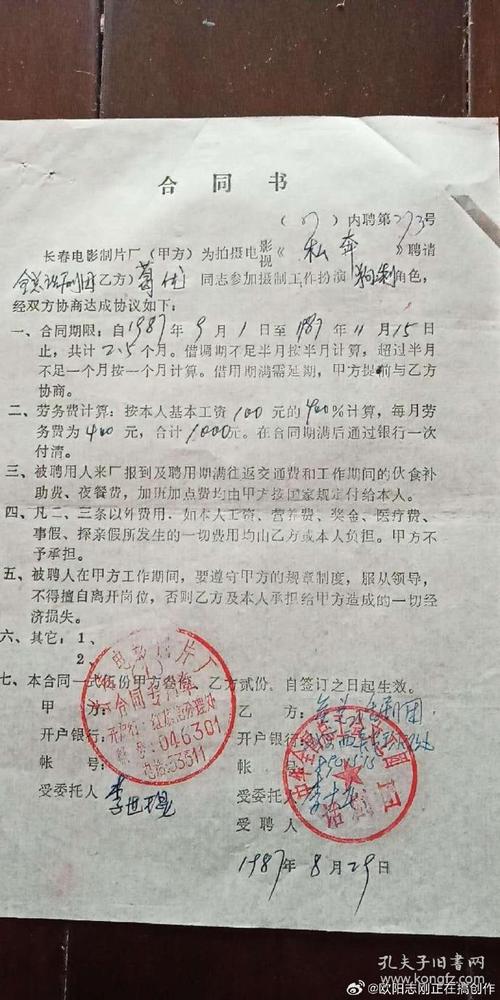 合同书
(87)内聘第273号
长春电影制片厂（甲方）为拍摄电影视《私奔》聘请
全总话剧团乙方）葛优同志参加摄制工作扮演狗剩角色，
经双方协商达成协议如下：
一、合同期限：自1987年9月1日至1987年11月15日
止，共计2.5个月。借调期不足半月按半月计算，超过半月
不足一个月按一个月计算。借用期满需延期，甲方提前与乙方
协商。
二、劳务费计算：按本人基本工资100元的400%计算，每月劳
务费为400元，合计1000元。在合同期满后通过银行一次
付清。
三、被聘用人来厂报到及聘用期满往返交通费和工作期间的伙食补
助费、夜餐费，加班加点费均由甲方按国家规定付给本人。
四、凡二、三条以外费用，如本人工资、营养费、奖金、医疗费、
事假、探亲假所发生的一切费用均由乙方或本人负担。甲方不
予承担。
五、被聘人在甲方工作期间，要遵守甲方的规章制度，服从领导，
不得擅自离开岗位，否则乙方及本人承担给甲方造成的一切经
济损失。
六、其它：1、
2、
七、本合同一式伍份甲方叁份，乙方贰份。自签订之日起生效。
甲方：
开户银行：
帐号：
受委托人
电影制片厂
合同专用章
开户行：
帐号：046301
电话：53311
乙方：全总话剧团
开户银行：
帐号：
受委托人
受聘人
中华全国总工会
话剧团
1987年8月29日
孔夫子旧书网
kongfz.com
@欧阳志刚正在搞创作